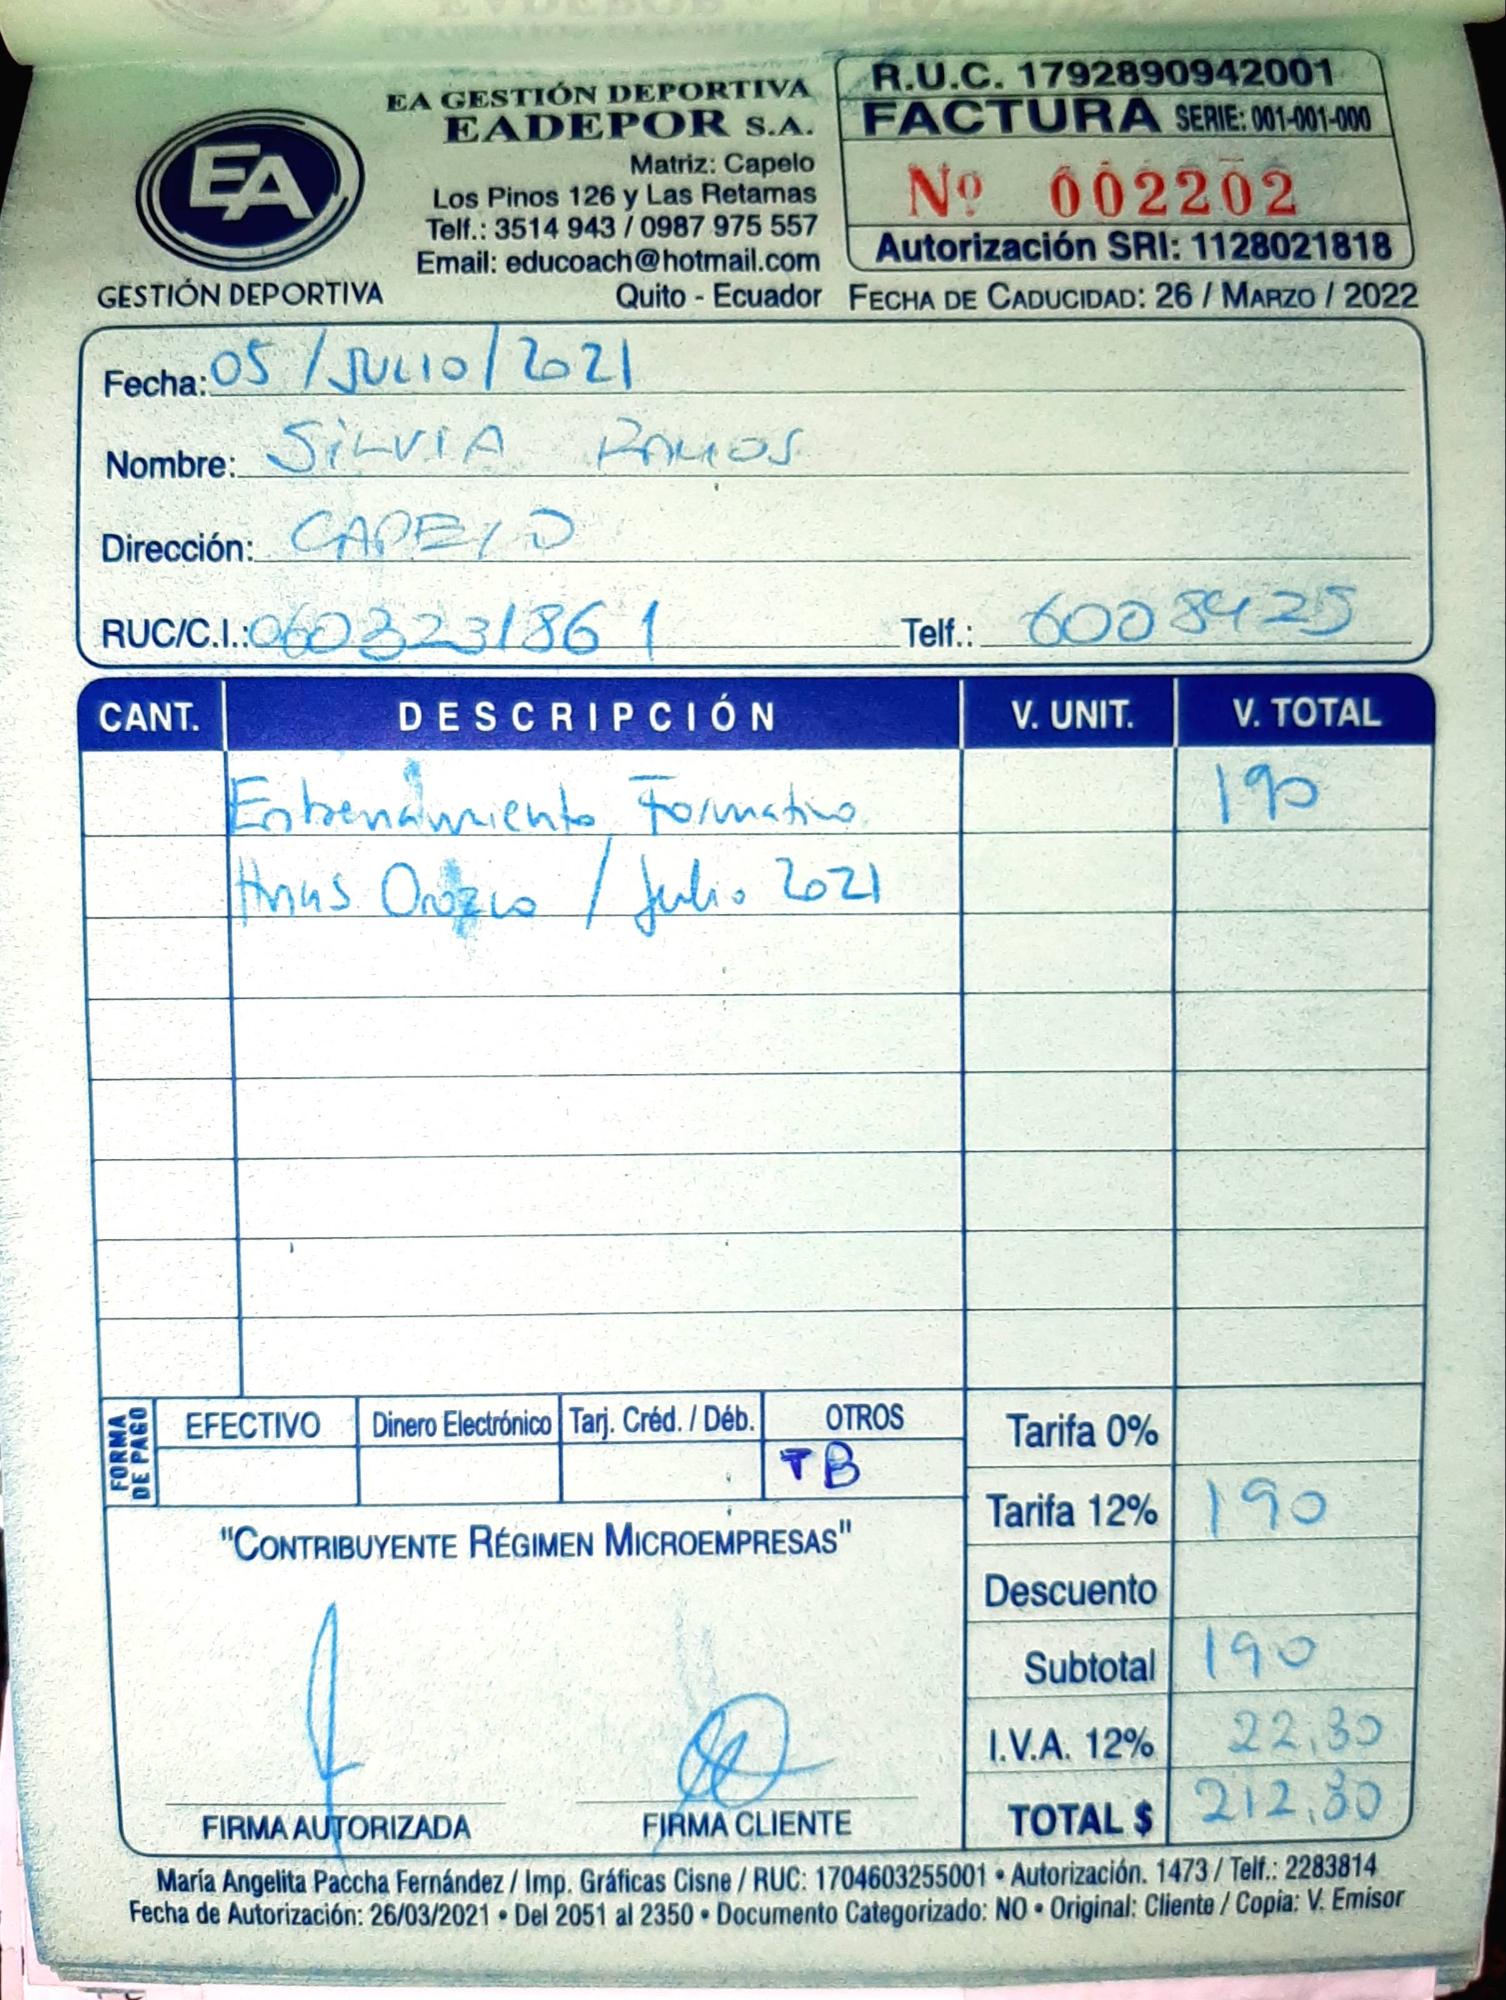 EA GESTIÓN DEPORTIVA
EADEPOR S.A.
Matriz: Capelo
Los Pinos 126 y Las Retamas
Telf.: 3514 943 / 0987 975 557
Email: educoach@hotmail.com
Quito - Ecuador
EA
GESTIÓN DEPORTIVA
R.U.C. 1792890942001
FACTURA SERIE: 001-001-000
Nº 002202
Autorización SRI: 1128021818
FECHA DE CADUCIDAD: 26 / MARZO / 2022
Fecha: 05 / JULIO / 2021
Nombre: SILVIA RAMOS
Dirección: CAPELO
RUC/C.I.: 0603231861 Telf.: 6008425
CANT. DESCRIPCIÓN V. UNIT. V. TOTAL
Entrenamiento Formativo 190
Orozco / Julio 2021
FORMA DE PAGO
EFECTIVO Dinero Electrónico Tarj. Créd. / Déb. OTROS
TB
Tarifa 0%
Tarifa 12% 190
Descuento
Subtotal 190
I.V.A. 12% 22,30
TOTAL $ 212,30
"CONTRIBUYENTE RÉGIMEN MICROEMPRESAS"
FIRMA AUTORIZADA FIRMA CLIENTE
María Angelita Paccha Fernández / Imp. Gráficas Cisne / RUC: 1704603255001 • Autorización. 1473 / Telf.: 2283814
Fecha de Autorización: 26/03/2021 • Del 2051 al 2350 • Documento Categorizado: NO • Original: Cliente / Copia: V. Emisor